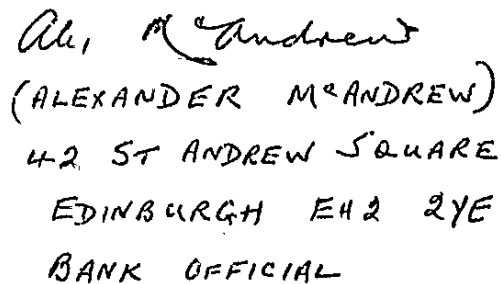 Alr. McAndrew
(ALEXANDER McANDREW)
42 ST ANDREW SQUARE
EDINBURGH EH2 2YE
BANK OFFICIAL